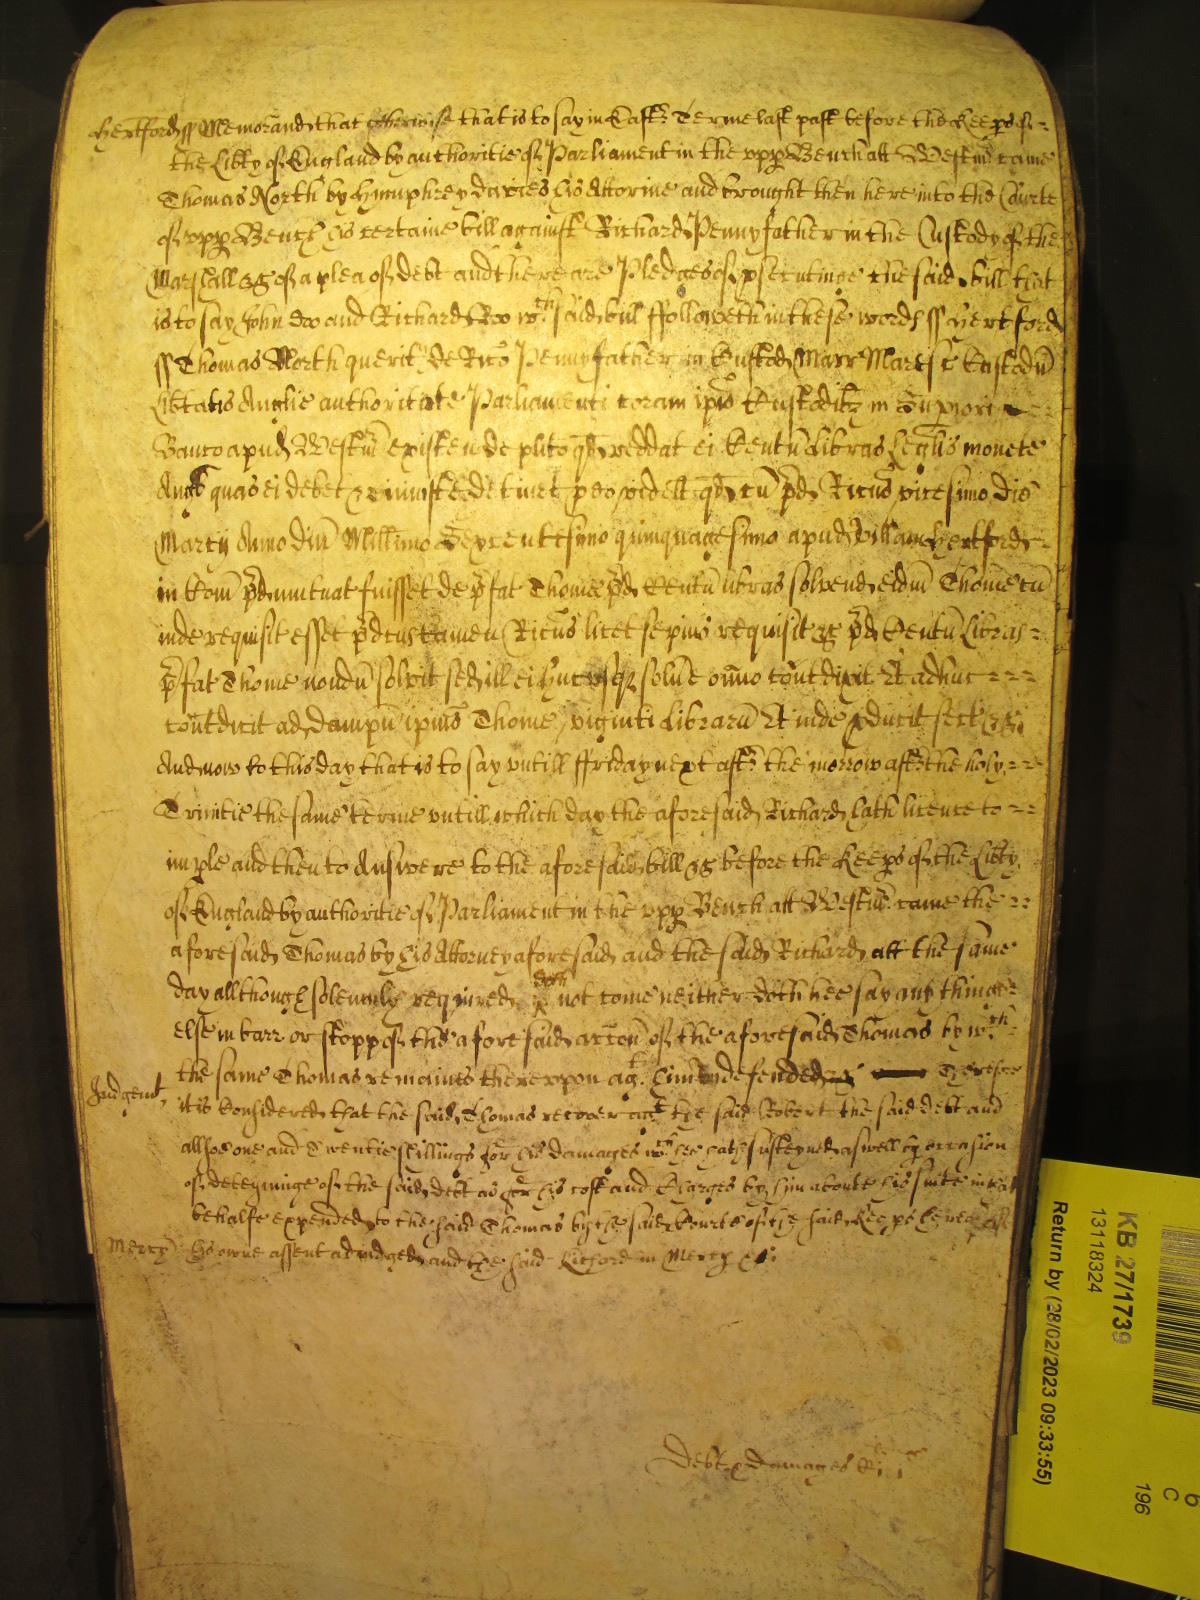 Hertford ss Memorand that otherwise that is to say in East Terme last past before the Keeps of
the Libty of England by authoritie of Parliament in the upp Bench att Westm came
Thomas North by Humphrey Davies his Attornie and brought then here into the Courte
of upp Bench his certaine bill against Richard Pennyfather in the Custody of the
Marshall &c of a plea of debt and there are Pledges of psecutinge the said bill that
is to say John Doo and Richard Roo wch said bill ffolloweth in these words ss Hertford
ss Thomas North querit de Rico Pennyfather in Custod Marr Maresc Custodu
Libtatis Anglie authoritate Parliamenti coram ipis Custodibz in Supiori
Banco apud Westm existen de plito qd reddat ei Centu Libras Leglis monete
Angl quas ei debet & iniuste detinet p eo videlt qd cu pd Ricus vicesimo die
Marcij Anno Dni Millimo Sexcentesimo quinquagesimo apud villam Hertford
in Com pd mutuat fuisset de pfat Thome pd Centu libras solvend eidm Thome cu
inde requisit esset pdcus tamen Ricus licet sepius requisit &c pd Centu Libras
pfat Thome nondu solvit sed ill ei hucusqz solue omno contdixit Et adhuc
contdicit ad dampnu ipius Thome viginti Libraru Et inde pducit sect &c
And now to this day that is to say untill ffriday next aft the morrow aft the holy
Trinitie the same terme untill which day the aforesaid Richard hath licence to
imple and then to Answere to the aforesaid bill &c before the Keeps of the Libty
of England by authoritie of Parliament in the upp Bench att Westm came the
aforesaid Thomas by his Attorney aforesaid and the said Richard att the same
day allthough solemnly required doth not come neither doth hee say any thinge
else in barr or stopp of the aforesaid accon of the aforesaid Thomas by wch
the same Thomas remaines thereupon agt him undefended Therefore
Judgemt
it is Considered that the said Thomas recover agt the said Robert the said debt and
allsoe one and Twentie shillings for his damages wch hee hath susteyned aswell by occasion
of deteyninge of the said debt as for his cost and Charges by him aboute his suite in that
behalfe expended to the said Thomas by the said Courte of the said Keeps here
Mercy
his owne assent adiudged and the said Richard in Mercy &c
Debt & damages
KB 27/1739
13118324
Return by (28/02/2023 09:33:55)
C
196